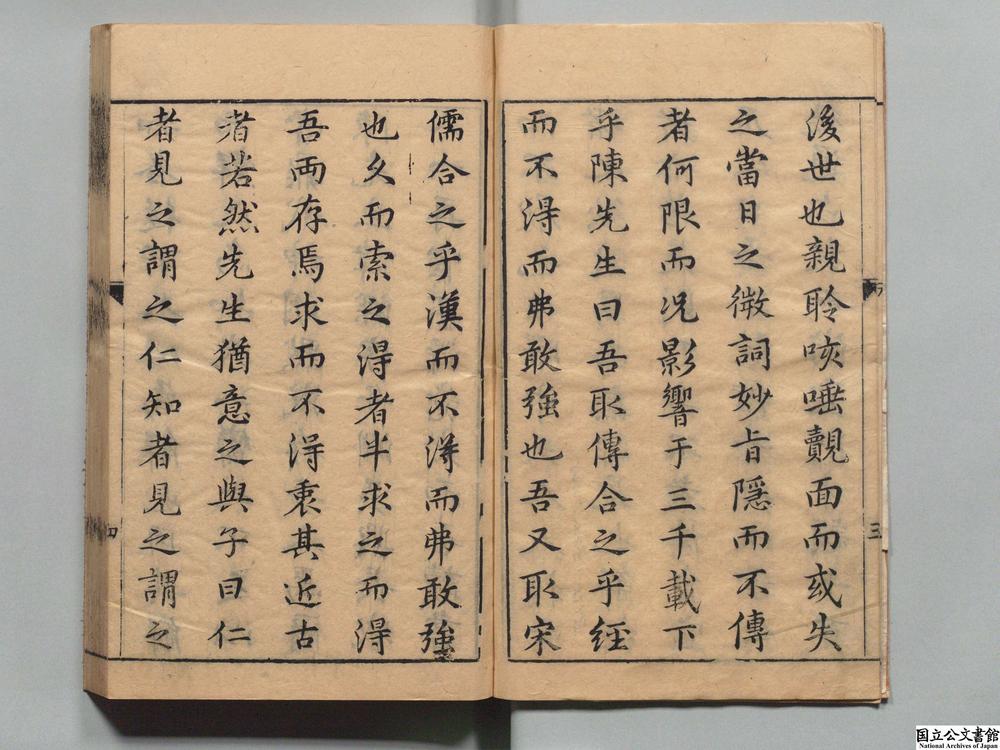 後世也親聆咳唾覿面而或失
之當日之微詞妙旨隱而不傳
者何限而况影響于三千載下
乎陳先生曰吾取傳合之乎經
而不得而弗敢強也吾又取宋
三
儒合之乎漢而不淂而弗敢強
也久而索之淂者半求之而淂
吾兩存焉求而不淂衷其近古
者若然先生猶意之與子曰仁
者見之謂之仁知者見之謂之
四
国立公文書館
National Archives of Japan